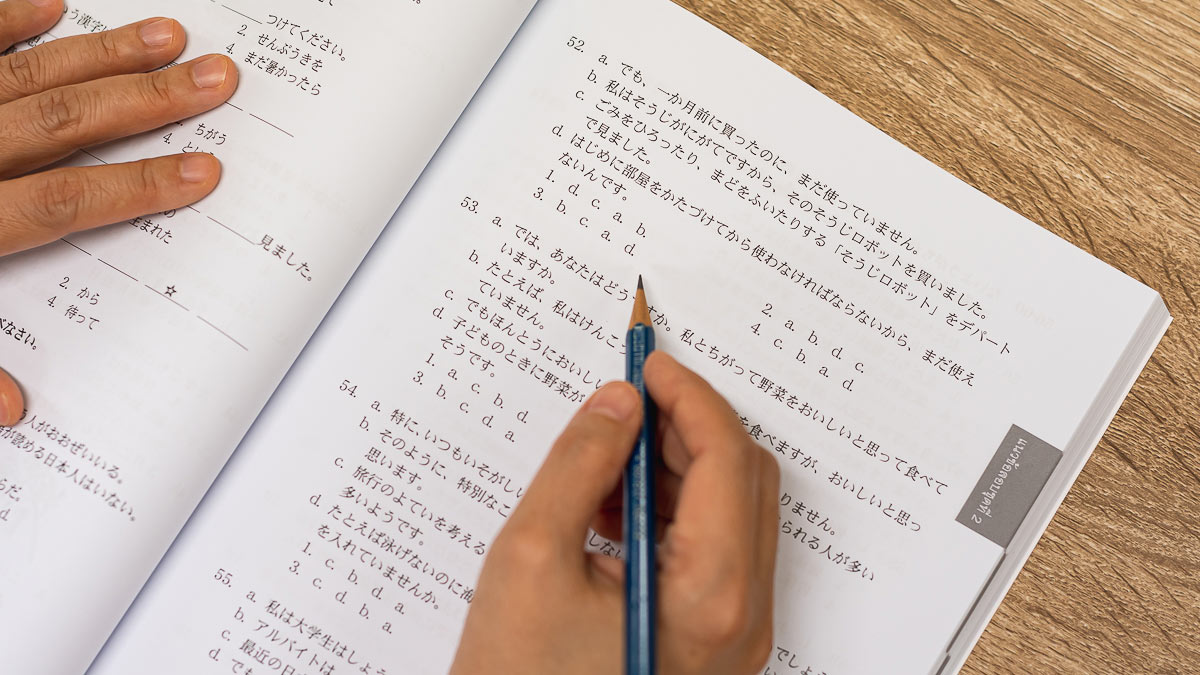 つけてください。
2. せんぷうきを
4. まだ暑かったら
ちがう
4.
見ました。
生まれた
☆
2. から
4. 待って
べなさい。
人がおおぜいいる。
が読める日本人はいない。
だ。
d
52.
a. でも、一か月前に買ったのに、まだ使っていません。
b. 私はそうじがにがてですから、そのそうじロボットを買いました。
c. ごみをひろったり、まどをふいたりする「そうじロボット」をデパート
で見ました。
d. はじめに部屋をかたづけてから使わなければならないから、まだ使え
ないんです。
1. d. c. a. b.
2. a. b. d. c.
3. b. c. a. d.
4. c. b. a. d.
53.
a. では、あなたはどう すか。私とちがって野菜をおいしいと思って食べて
いますか。
b. たとえば、私はけんこう を食べますが、おいしいと思っ
ていません。
c. でもほんとうにおいしい りません。
d. 子どものときに野菜が られる人が多い
そうです。
1. a. c. b. d.
3. b. c. d. a.
54.
a. 特に、いつもいそがしい
b. そのように、特別なこ
思います。
c. 旅行のよていを考える しない
多いようです。
d. たとえば泳げないのに海
を入れていませんか。
1. c. b. d. a.
3. c. d. b. a.
55.
a. 私は大学生はしょう でしょう
b. アルバイトは
c. 最近の日本
d. でも
แนวข้อสอบชุดที่ 2